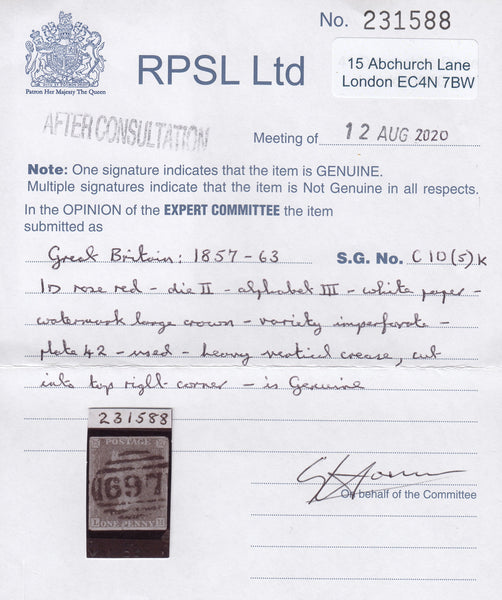 No. 231588
15 Abchurch Lane
London EC4N 7BW
Patron Her Majesty The Queen
RPSL Ltd
AFTER CONSULTATION
Meeting of 12 AUG 2020
Note: One signature indicates that the item is GENUINE.
Multiple signatures indicate that the item is Not Genuine in all respects.
In the OPINION of the EXPERT COMMITTEE the item
submitted as
Great Britain: 1857-63 S.G. No. C10(5)k
1D rose red - die II - alphabet III - white paper -
watermark large crown - variety imperforate -
plate 42 - used - heavy vertical crease, cut
into top right corner - is Genuine
231588
POSTAGE
697
ONE PENNY H
On behalf of the Committee